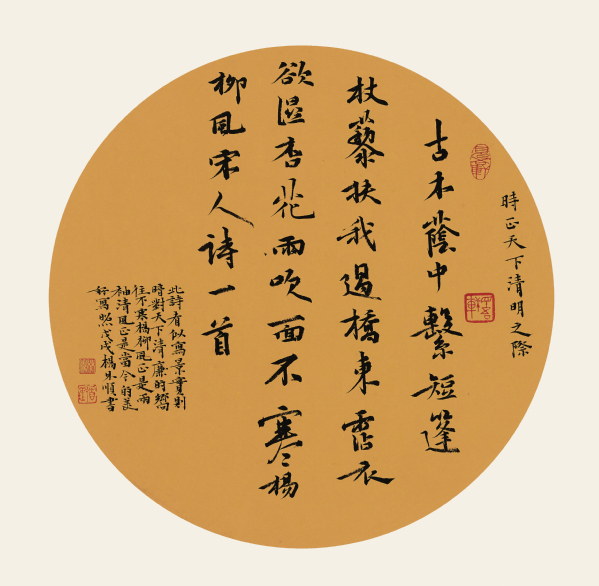 時正天下清明之際
古木蔭中繫短篷
杖藜扶我過橋東霑衣
欲湿杏花雨吹面不寒楊
柳風宋人詩一首
此詩有似寫景實則
時對天下清廉的嚮
往不寒楊柳風正是兩
袖清風正是當今的美
好寫照戊戌楊順書